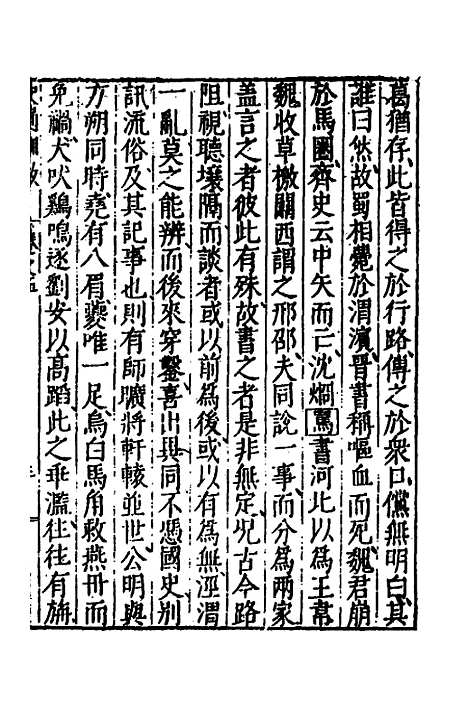 葛猶存此皆得之於行路傳之於衆口儻無明白其
誰曰然故蜀相斃於渭濱晉書稱嘔血而死魏君崩
於馬圈齊史云中矢而亡沈烱罵書河北以爲王韋
魏收草檄關西謂之邢邵夫同說一事而分爲兩家
盖言之者彼此有殊故書之者是非無定况古今路
阻視聽壤隔而談者或以前爲後或以有爲無涇渭
一亂莫之能辨而後來穿鑿喜出異同不慿國史別
訊流俗及其記事也則有師曠將軒轅並世公明與
方朔同時堯有八眉夔唯一足烏白馬角救燕丹而
免禍犬吠鷄鳴逐劉安以高蹈此之乖濫徃徃有旃